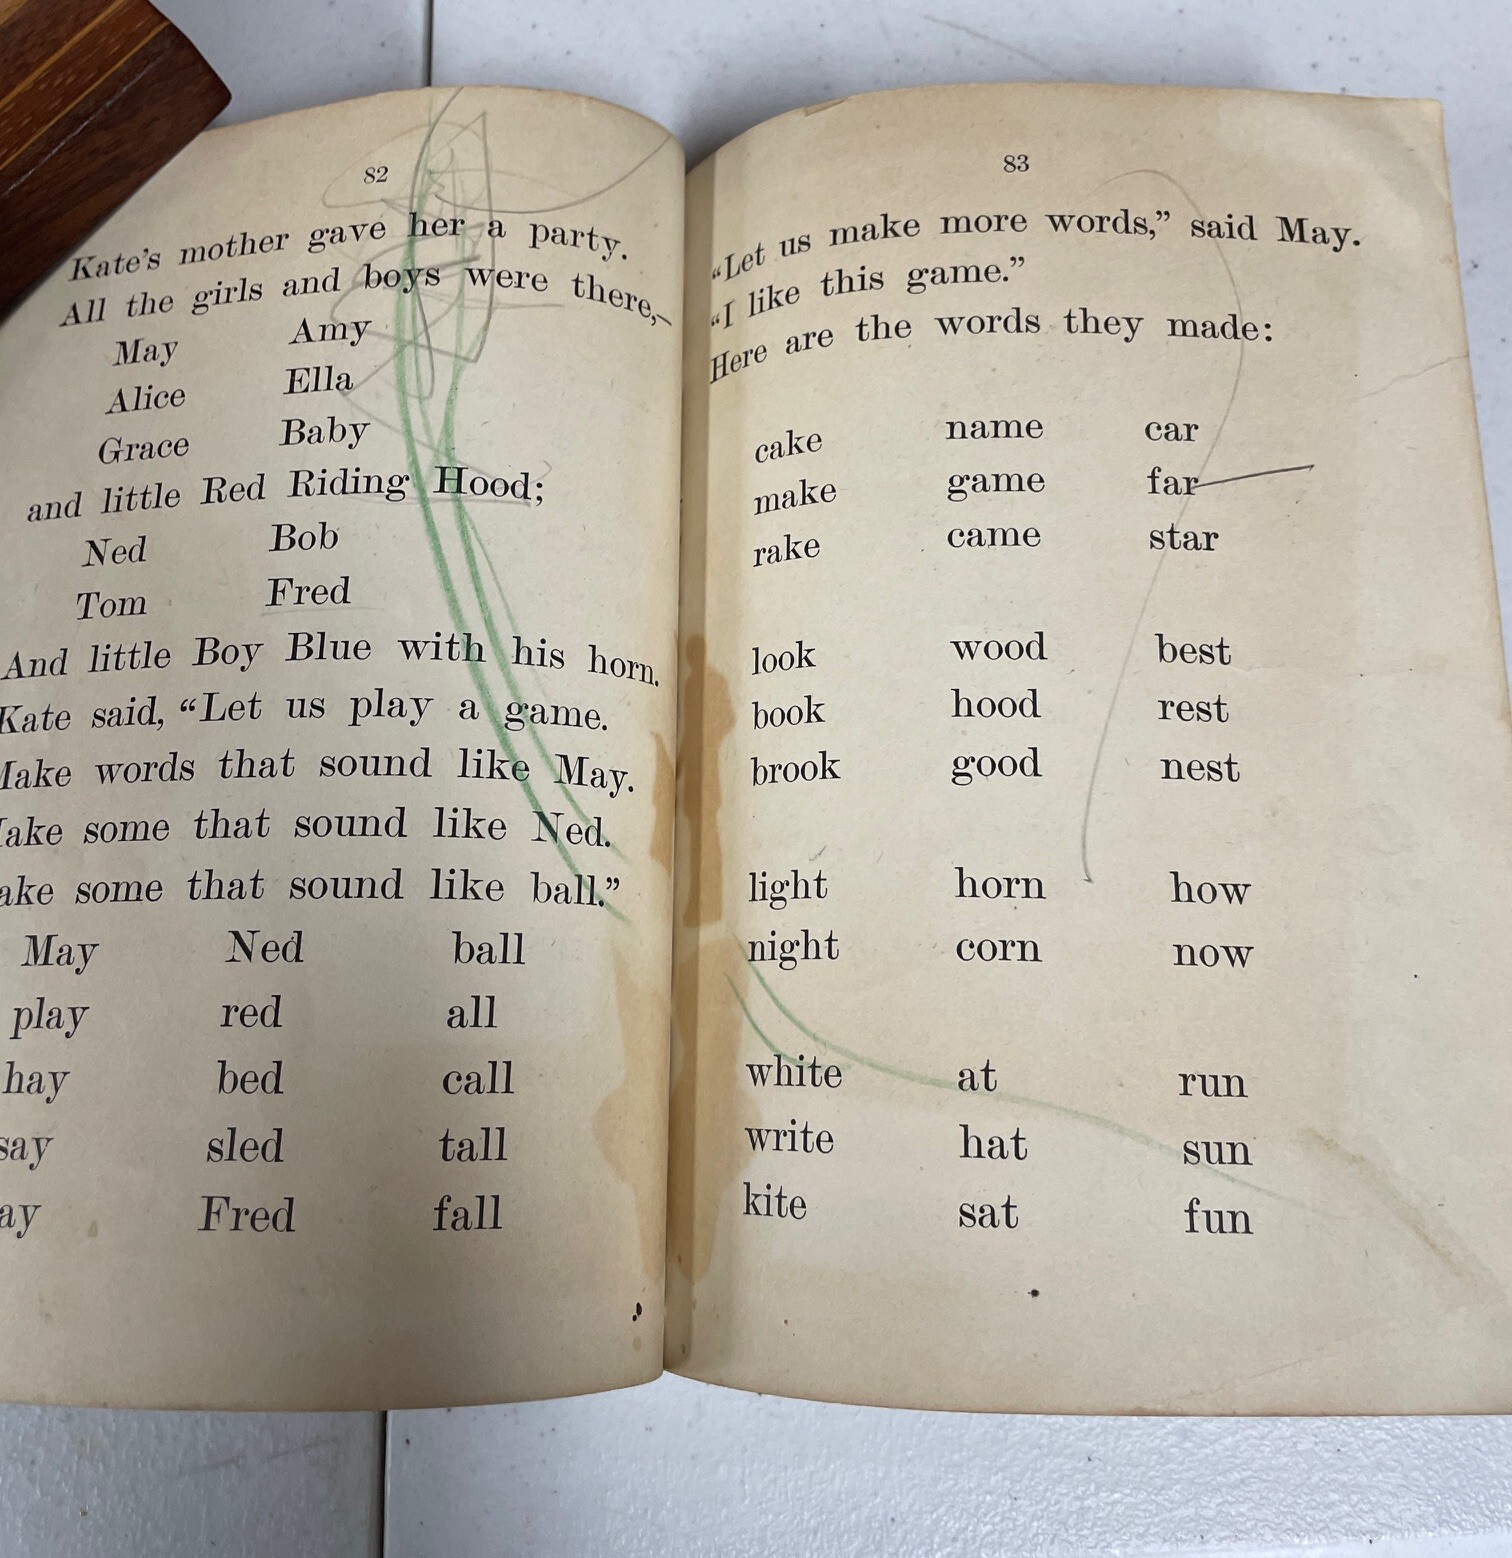 82
Kate's mother gave her a party.
All the girls and boys were there,—
May Amy
Alice Ella
Grace Baby
and little Red Riding Hood;
Ned Bob
Tom Fred
And little Boy Blue with his horn.
Kate said, “Let us play a game.
Make words that sound like May.
Make some that sound like Ned.
Make some that sound like ball.”
May Ned ball
play red all
hay bed call
say sled tall
ay Fred fall
83
“Let us make more words,” said May.
“I like this game.”
Here are the words they made:
cake name car
make game far
rake came star
look wood best
book hood rest
brook good nest
light horn how
night corn now
white at run
write hat sun
kite sat fun